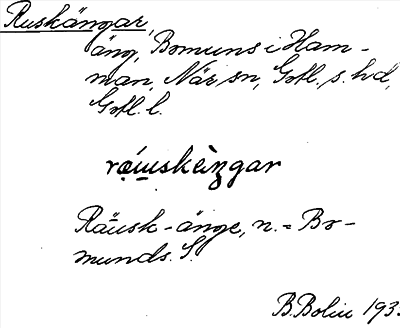 Ruskängar,
äng, Bomunds i Ham-
man, När sn, Gotl. s. hd,
Gotl. l.
Räusk-änge, n. = Bo-
munds. S.
B. Bolin 193